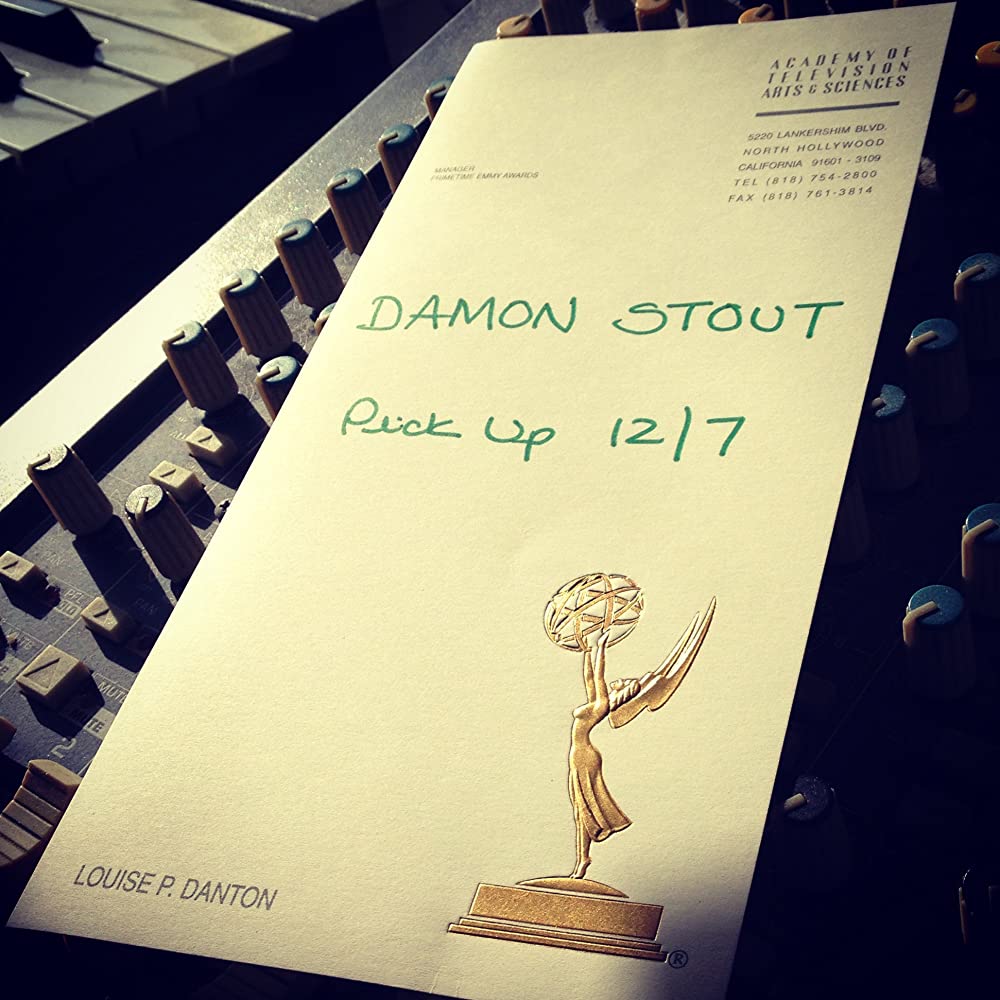 ACADEMY OF
TELEVISION
ARTS & SCIENCES
5220 LANKERSHIM BLVD.
NORTH HOLLYWOOD
CALIFORNIA 91601 - 3109
TEL (818) 754-2800
FAX (818) 761-3814
MANAGER
PRIMETIME EMMY AWARDS
DAMON STOUT
Pick Up 12/7
LOUISE P. DANTON
®
MUTE
MUTE
2